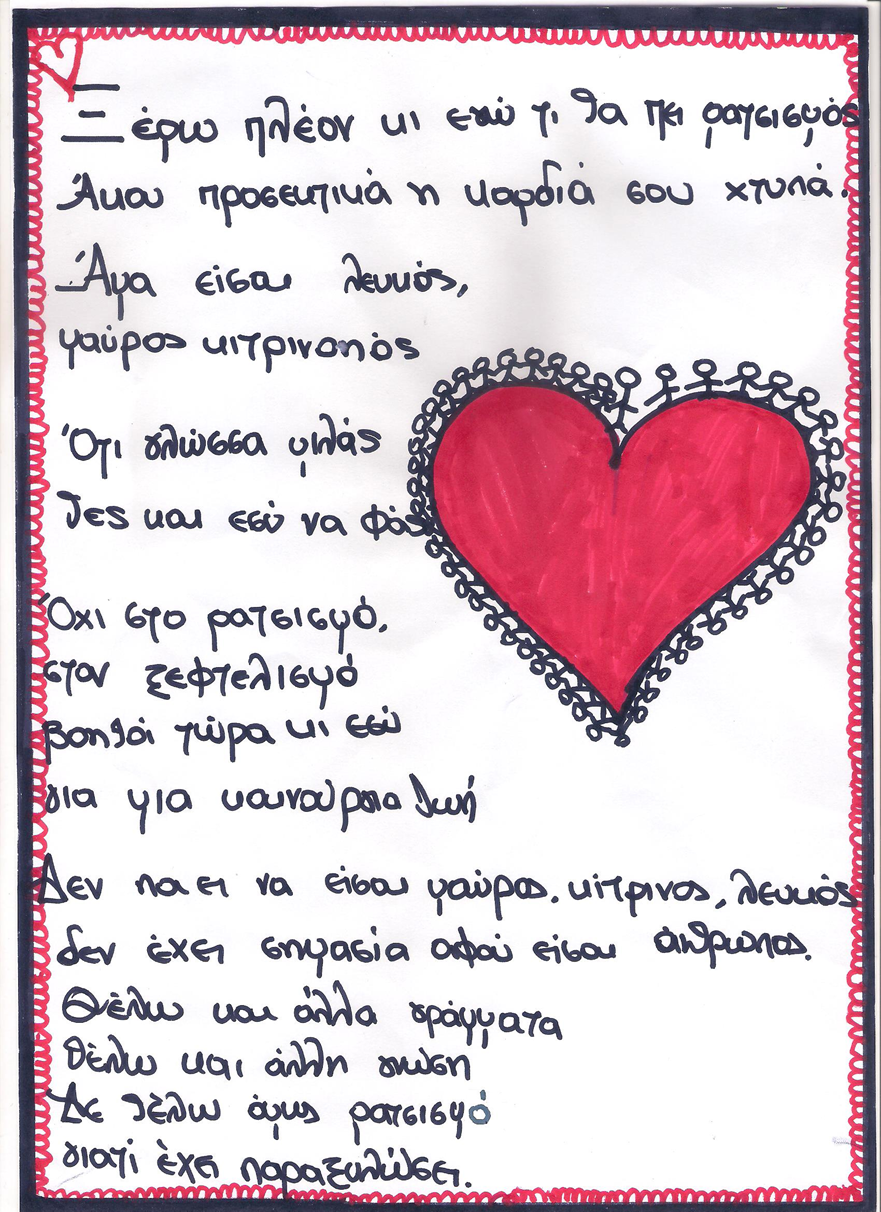 Ξέρω πλέον κι εγώ τι θα πει ρατσισμός
Άκου προσεκτικά η καρδιά σου χτυπά.
Άμα είσαι λευκός,
μαύρος κιτρινοπός
Ότι γλώσσα μιλάς
Τες και εσύ να φας
Όχι στο ρατσισμό,
στον ξεφτελισμό
βοηθάι τώρα κι εσύ
για μια καινούργια ζωή
Δεν πα ει να είσαι μαύρος, κίτρινος, λευκός
δεν έχει σημασία αφού είσαι άνθρωπος.
Θέλω και άλλα γράμματα
θέλω και άλλη γνώση
Δε θέλω όμως ρατσισμό
γιατί έχει παραξυλώσει.